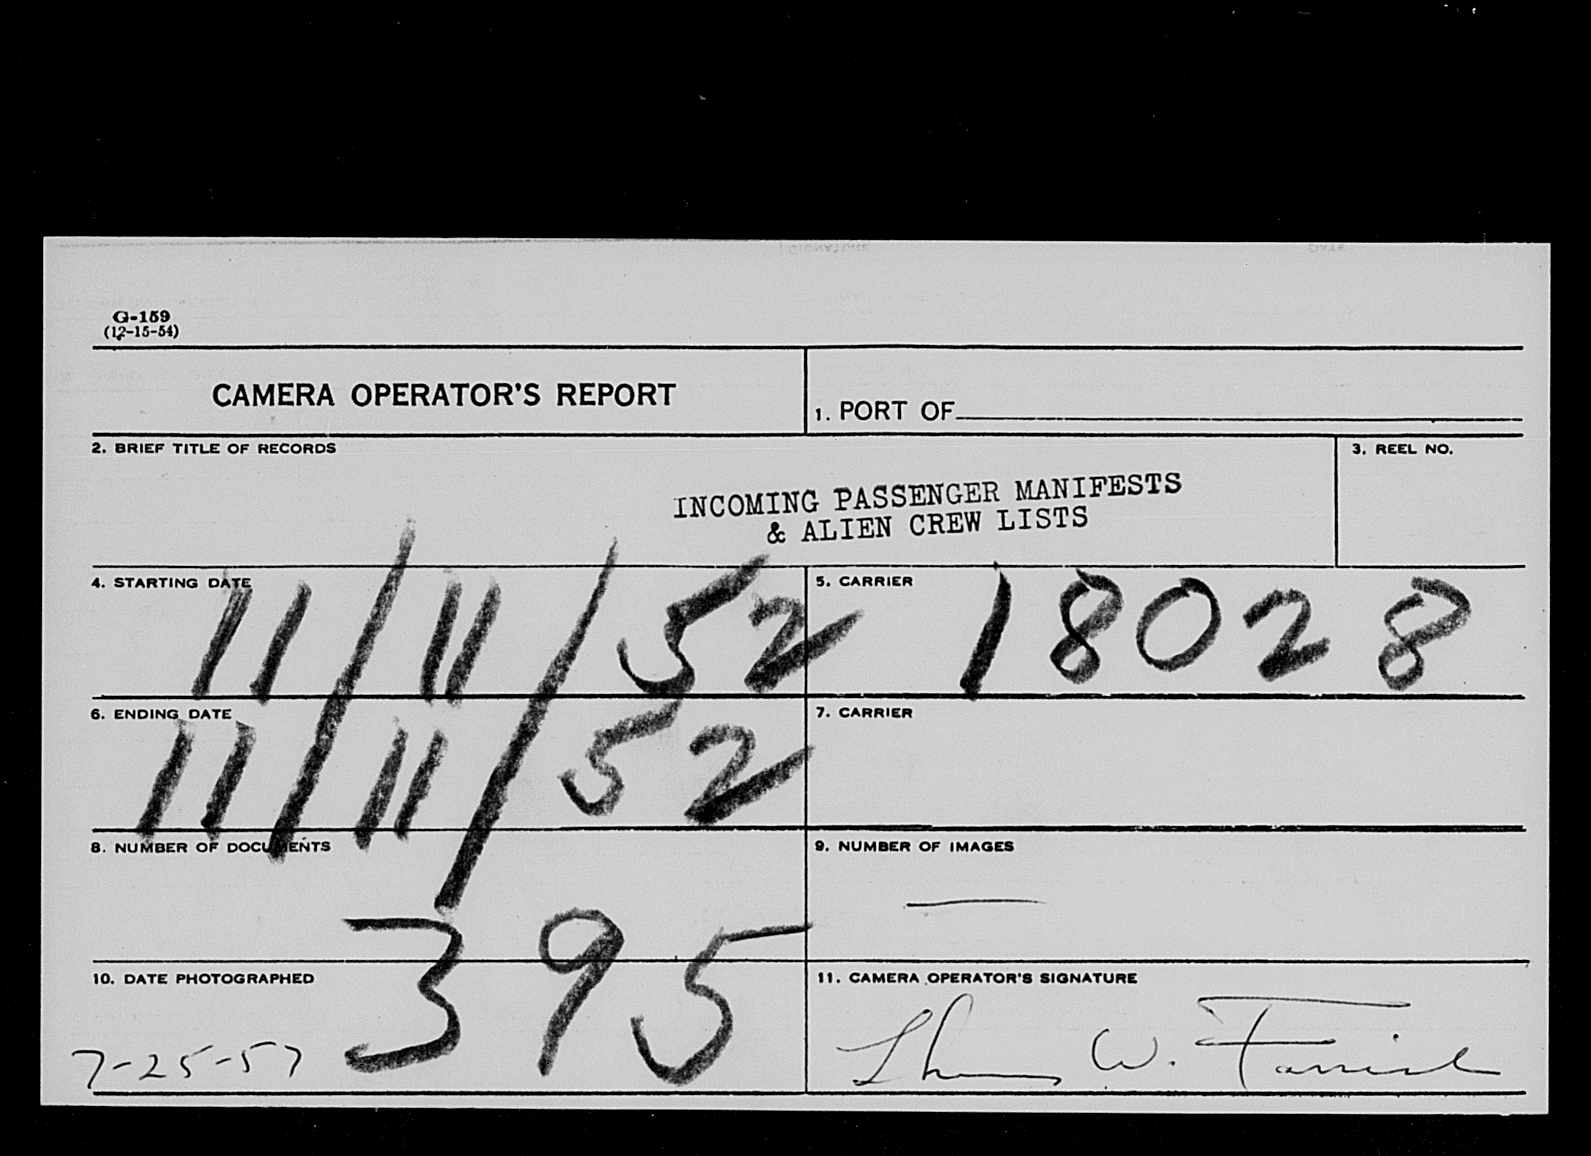 G-159
(12-15-54)
CAMERA OPERATOR'S REPORT
1. PORT OF
2. BRIEF TITLE OF RECORDS
3. REEL NO.
INCOMING PASSENGER MANIFESTS
& ALIEN CREW LISTS
4. STARTING DATE
11/11/52
5. CARRIER
18028
6. ENDING DATE
11/11/52
7. CARRIER
8. NUMBER OF DOCUMENTS
395
9. NUMBER OF IMAGES
—
10. DATE PHOTOGRAPHED
7-25-57
11. CAMERA OPERATOR'S SIGNATURE
W.